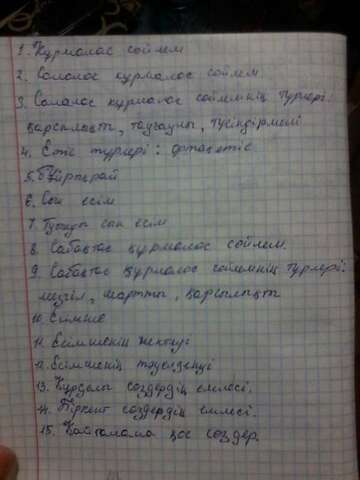 1. Құрмалас сөйлем
2. Салалас құрмалас сөйлем
3. Салалас құрмалас сөйлемнің түрлері:
қарсылықты, талғаулы, түсіндірмелі
4. Етіс түрлері:
5. Бұйрық рай
6. Сын есім
7. Туынды сын есім
8. Сабақтас құрмалас сөйлем.
9. Сабақтас құрмалас сөйлемнің түрлері:
мезгіл, шартты, қарсылықты
10. Есімше
11. Есімшенің жіктелуі
12. Есімшенің тәуелденуі
13. Күрделі сөздердің емлесі.
14. Біріккен сөздердің емлесі.
15. Қайталама қос сөздер.